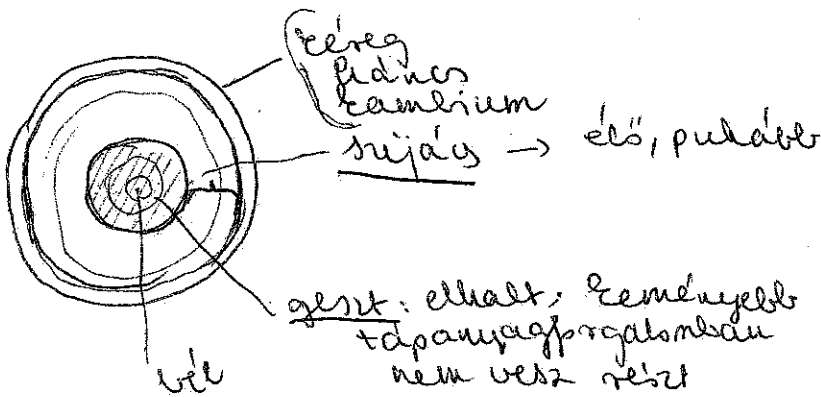 kéreg
háncs
kambium
szijács → élő, puhább
geszt: elhalt, keményebb
tápanyagforgalomban
nem vesz részt
bél